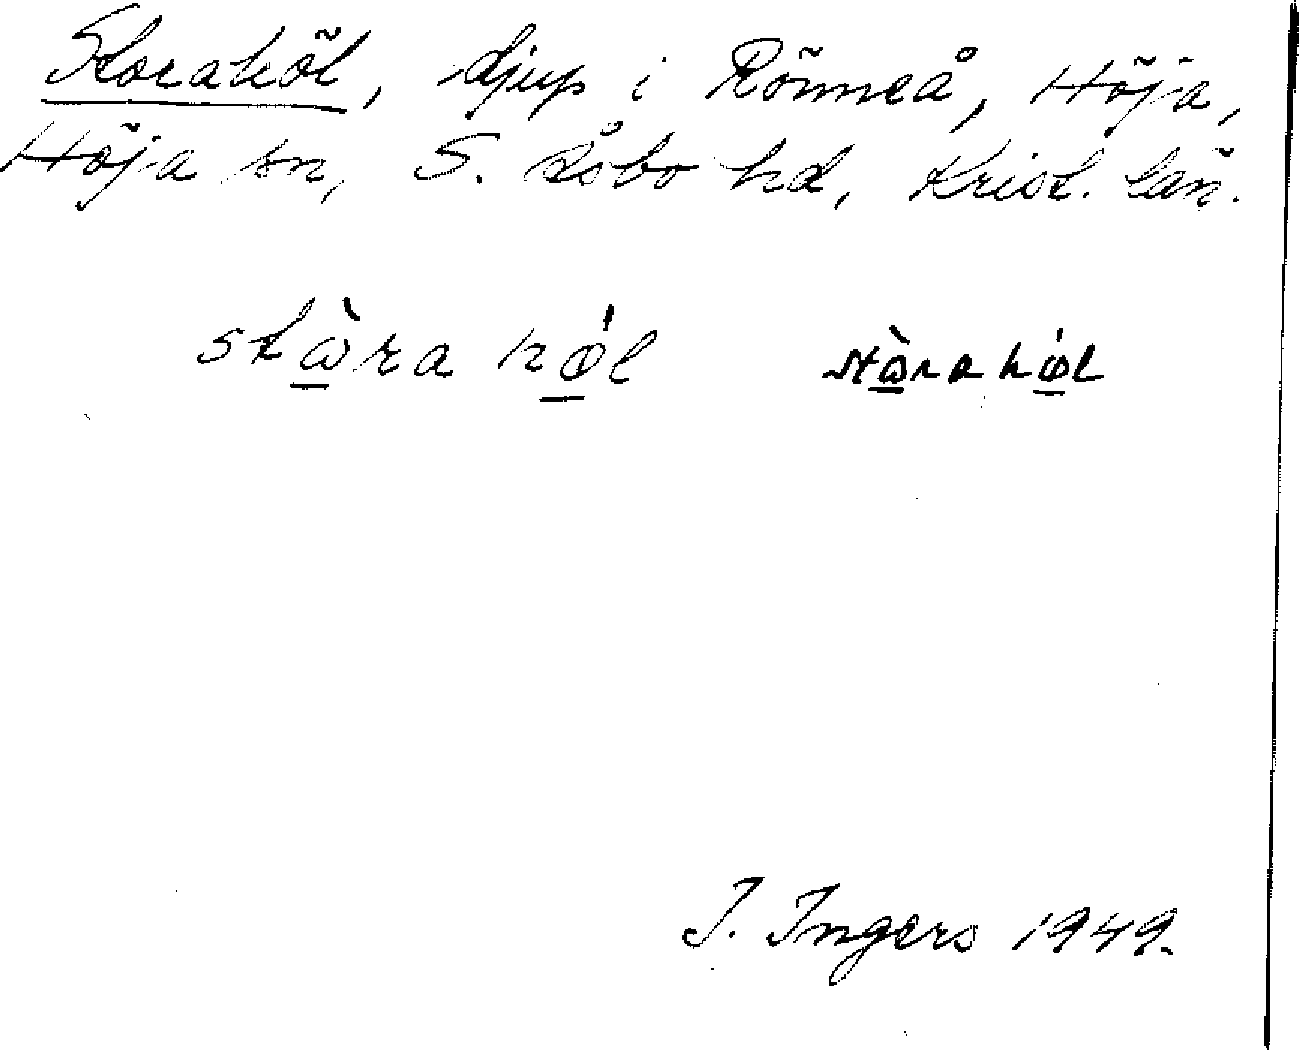 Storahöl, djup i Rönneå, Höja,
Höja sn, S. Åsbo hd, Krist. län.
stὼra hǿl stὼra hǿl
I. Ingers 1949.